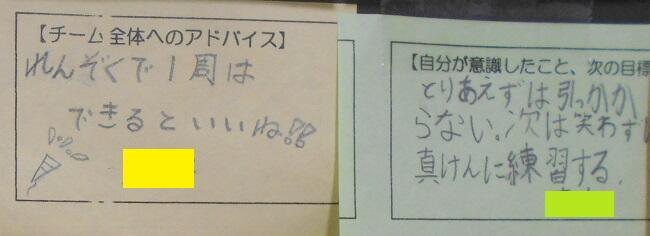 【チーム全体へのアドバイス】
れんぞくで1周は
できるといいね!!
【自分が意識したこと、次の目標
とりあえずは引っかか
らない。次は笑わずに
真けんに練習する。